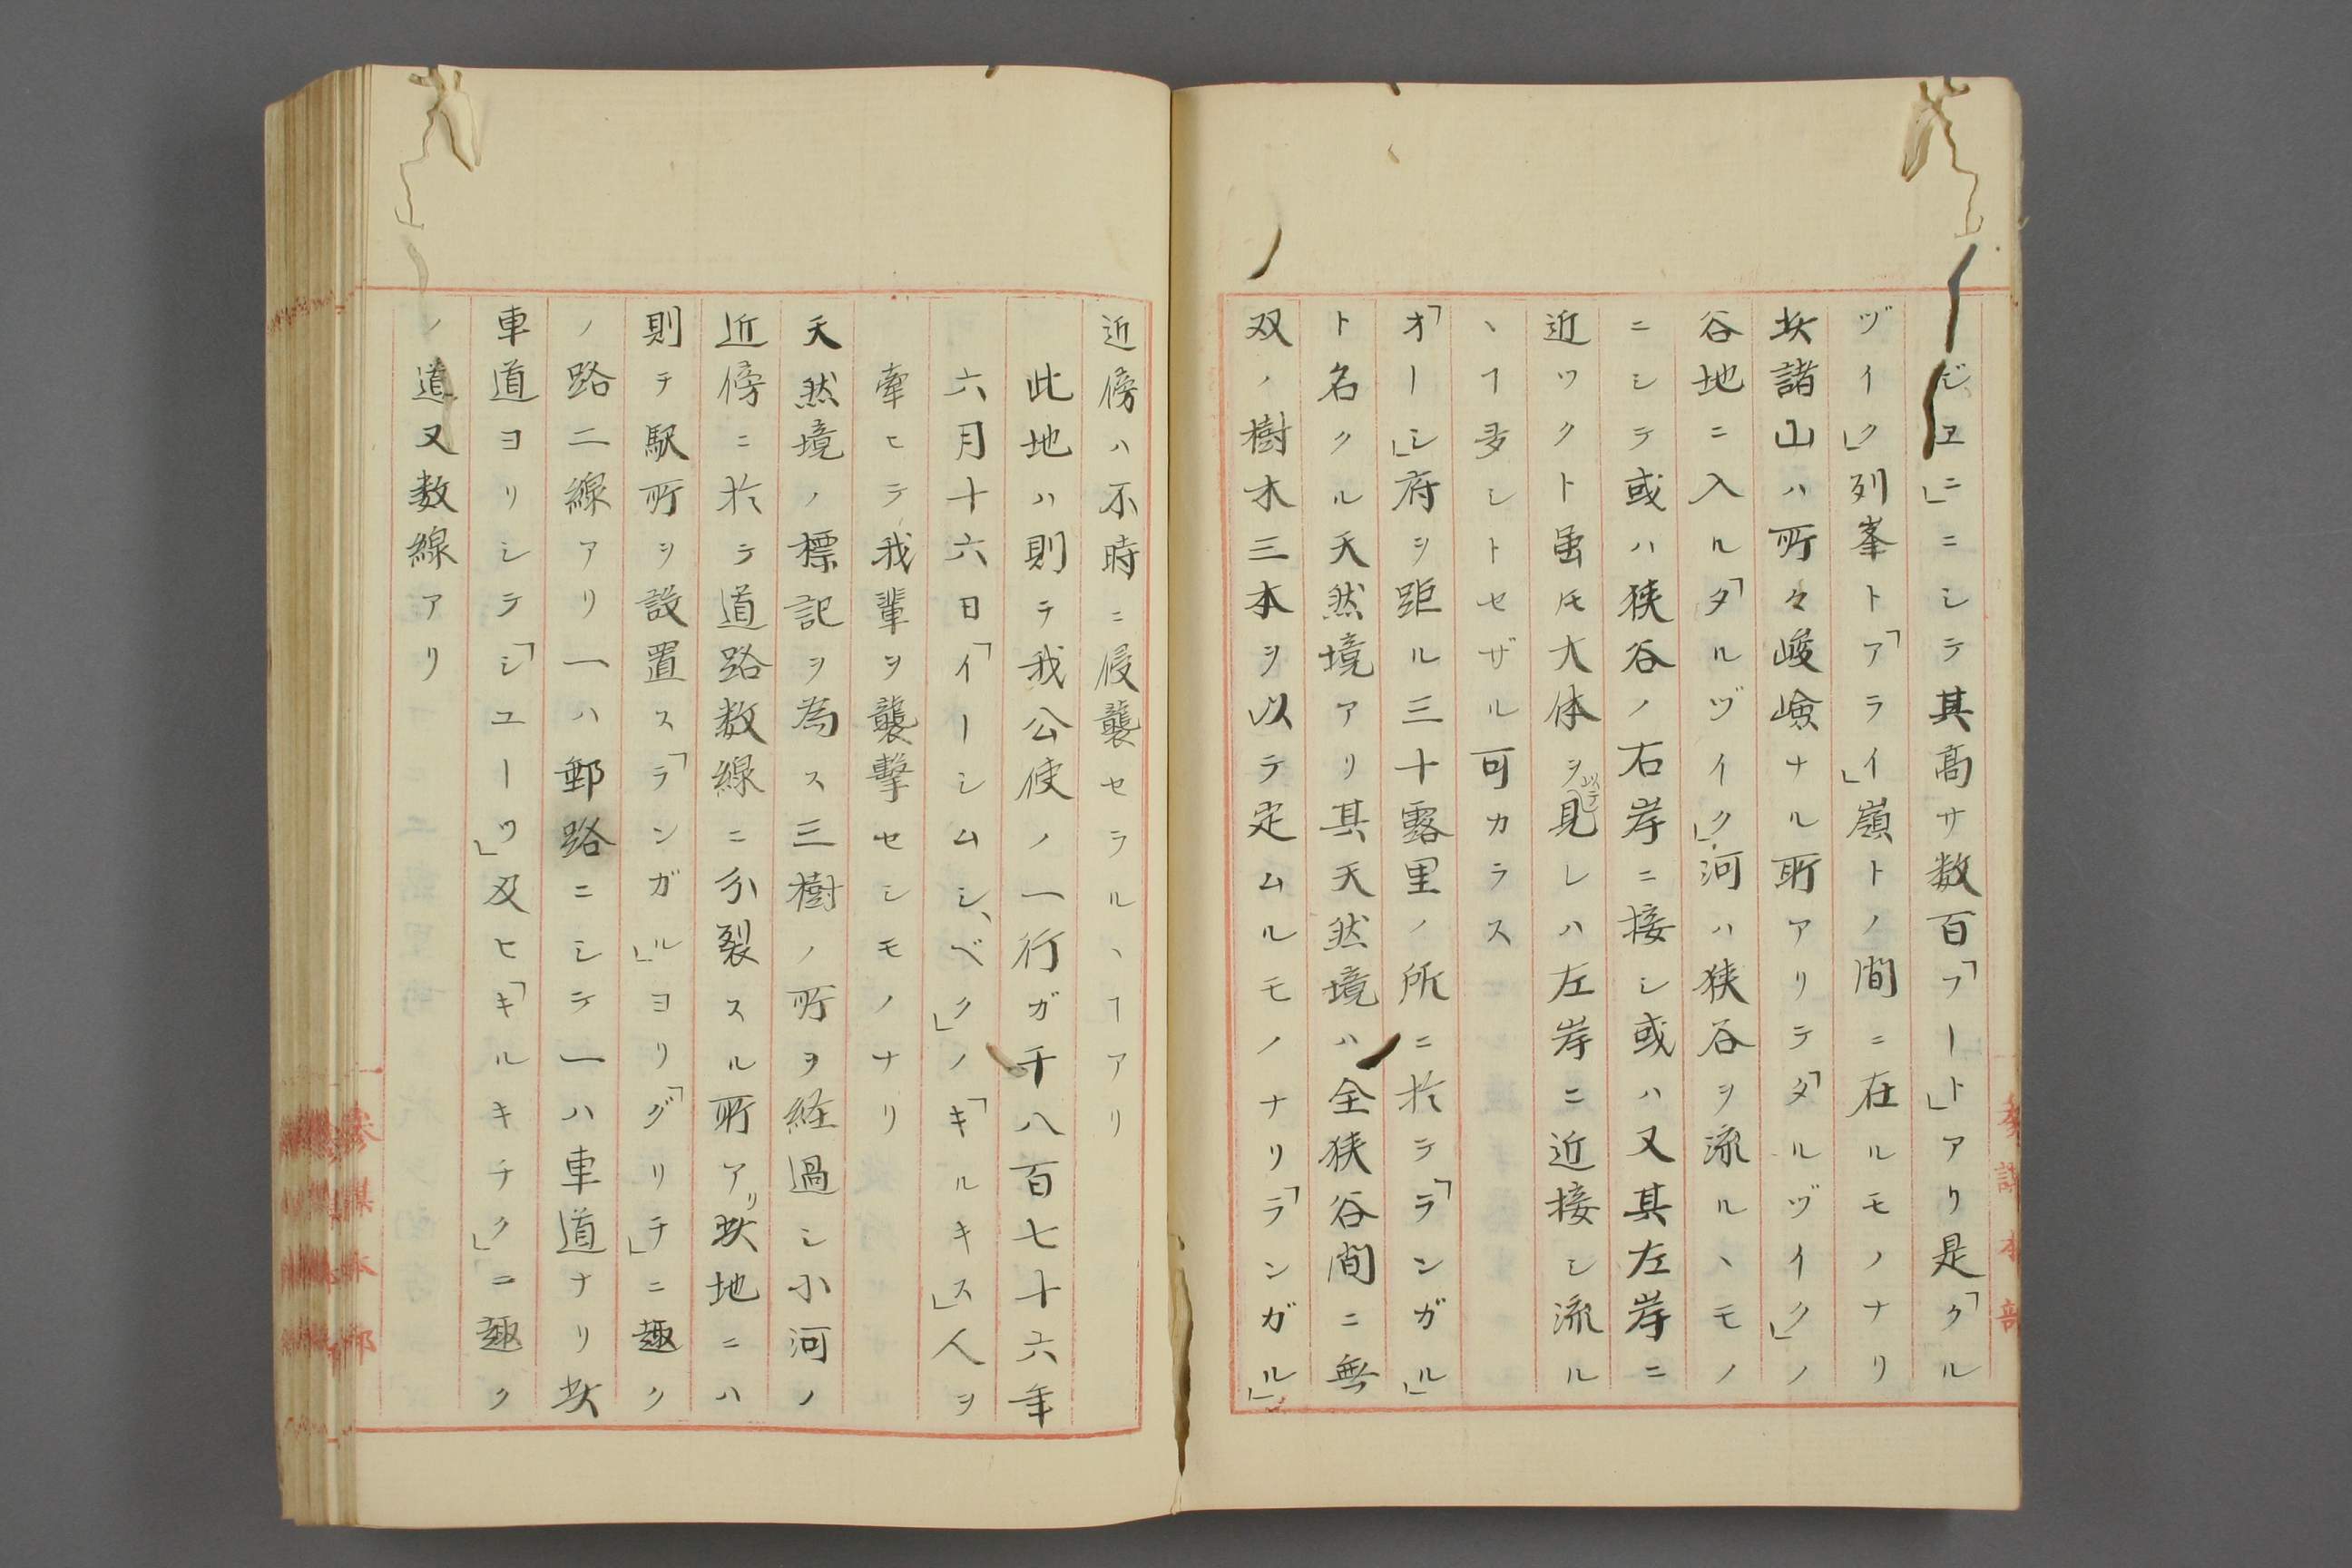 ジヱ」ニニシテ其高サ数百「フート」アリ是「クル
ヅイク」列峯ト「アライ」嶺トノ間ニ在ルモノナリ
此諸山ハ所々峻嶮ナル所アリテ「タルヅイク」ノ
谷地ニ入ル「タルヅイク」河ハ狭谷ヲ流ルヽモノ
ニシテ或ハ狭谷ノ右岸ニ接シ或ハ又其左岸ニ
近ツクト虽𪜈大体ヲ以テ見レハ左岸ニ近接シ流ル
ヽヿ多シトセザル可カラス
「オーシ」府ヲ距ル三十露里ノ所ニ於テ「ランガル」
ト名クル天然境アリ其天然境ハ全狭谷間ニ無
双ノ樹木三本ヲ以テ定ムルモノナリ「ランガル」
近傍ハ不時ニ侵襲セラルヽヿアリ
此地ハ則チ我公使ノ一行ガ千八百七十六年
六月十六日「イーシムシ、ベク」ノ「キルキス」人ヲ
牽ヒテ我輩ヲ襲撃セシモノナリ
天然境ノ標記ヲ為ス三樹ノ所ヲ経過シ小河ノ
近傍ニ於テ道路数線ニ分裂スル所アリ此地ニハ
則チ駅所ヲ設置ス「ランガル」ヨリ「グリチ」ニ趣ク
ノ路二線アリ一ハ郵路ニシテ一ハ車道ナリ此
車道ヨリシテ「シユーツ」及ヒ「キルキチク」ニ趣ク
ノ道又数線アリ
参謀本部
参謀本部